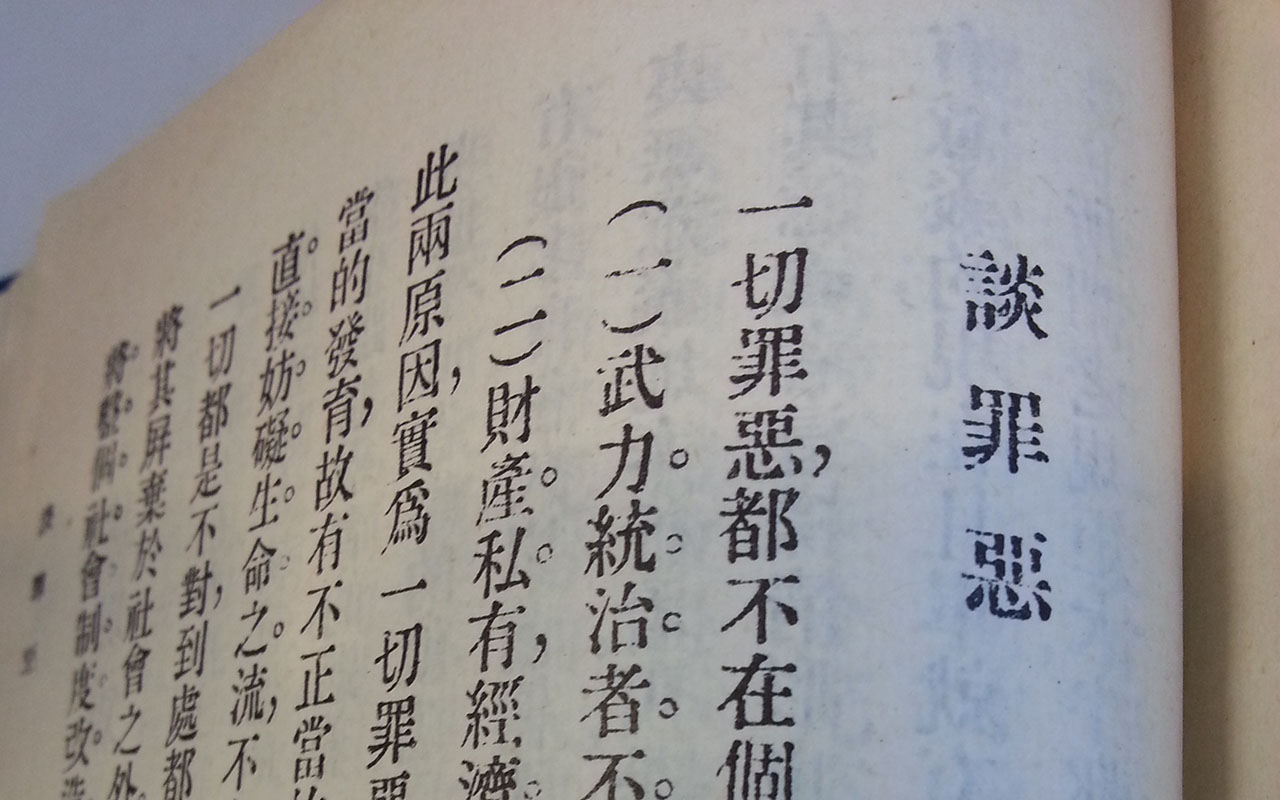 談罪惡
一切罪惡，都不在個
（一）武力。統。治。者。不。
（二）財產。私。有，經濟。
此兩原因，實爲一切罪惡
當的發育，故有不正當的
直。接。妨。礙。生。命。之。流，不
一切都是不對，到處都
將其屏棄於社會之外。
將。整。個。社。會。制。度。改。造
談罪惡